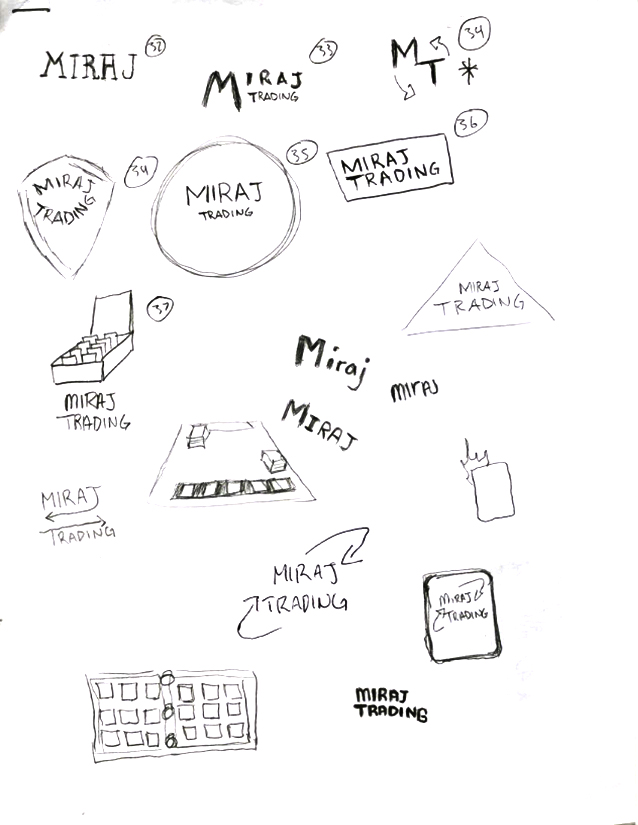 MIRAJ
32
MIRAJ
TRADING
33
M
T
*
34
MIRAJ
TRADING
34
MIRAJ
TRADING
35
MIRAJ
TRADING
36
MIRAJ
TRADING
37
MIRAJ
TRADING
Miraj
MIRAJ
MIRAJ
MIRAJ
TRADING
MIRAJ
TRADING
MIRAJ
TRADING
MIRAJ
TRADING